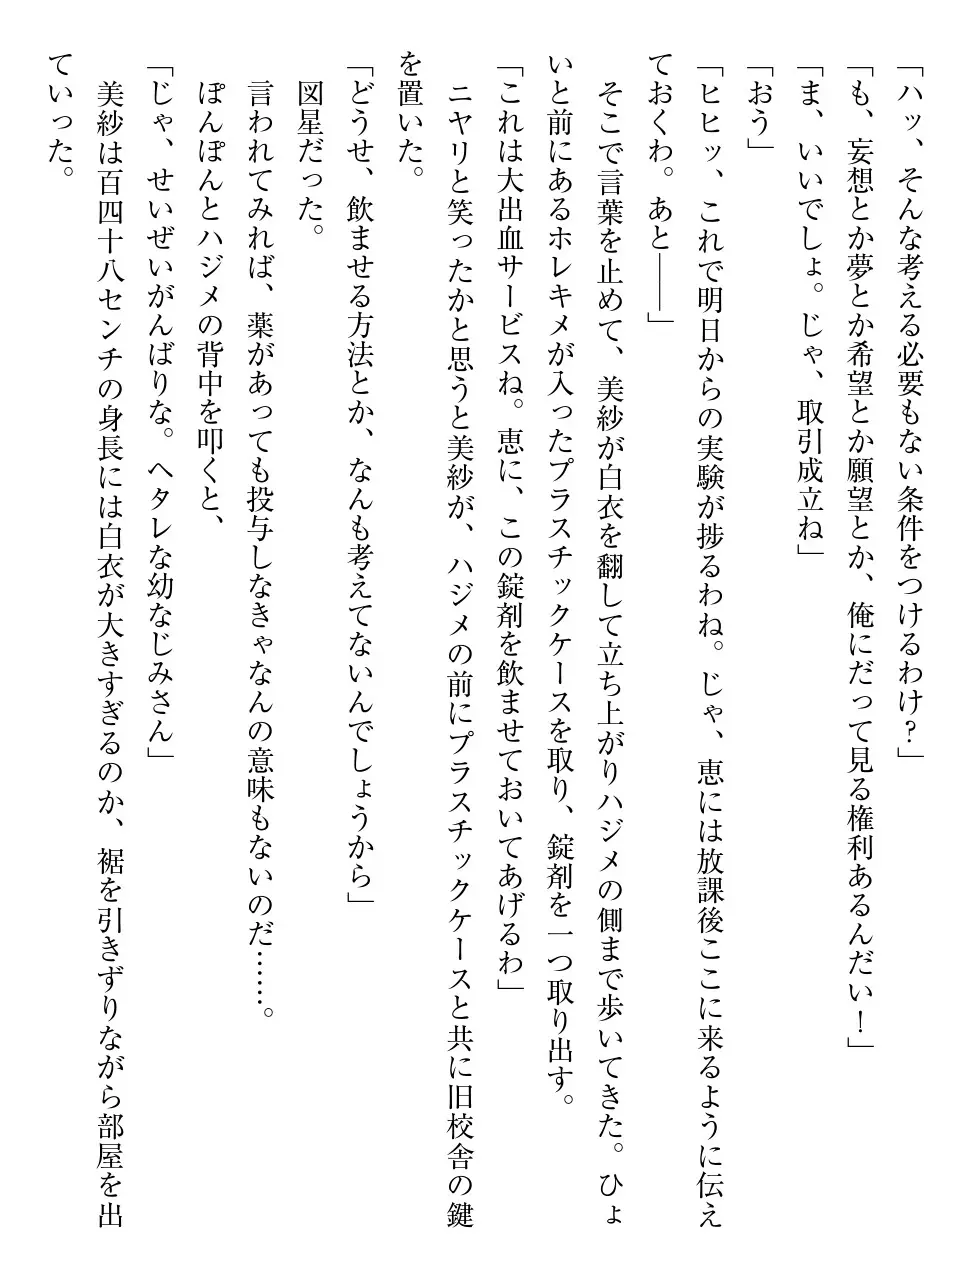 「ハッ、そんな考える必要もない条件をつけるわけ？」
「も、妄想とか夢とか希望とか願望とか、俺にだって見る権利あるんだい！」
「ま、いいでしょ。じゃ、取引成立ね」
「おう」
「ヒヒッ、これで明日からの実験が捗るわね。じゃ、恵には放課後ここに来るように伝え
ておくわ。あと――」
　そこで言葉を止めて、美紗が白衣を翻して立ち上がりハジメの側まで歩いてきた。ひょ
いと前にあるホレキメが入ったプラスチックケースを取り、錠剤を一つ取り出す。
「これは大出血サービスね。恵に、この錠剤を飲ませておいてあげるわ」
　ニヤリと笑ったかと思うと美紗が、ハジメの前にプラスチックケースと共に旧校舎の鍵
を置いた。
「どうせ、飲ませる方法とか、なんも考えてないんでしょうから」
　図星だった。
　言われてみれば、薬があっても投与しなきゃなんの意味もないのだ……。
　ぽんぽんとハジメの背中を叩くと、
「じゃ、せいぜいがんばりな。ヘタレな幼なじみさん」
　美紗は百四十八センチの身長には白衣が大きすぎるのか、裾を引きずりながら部屋を出
ていった。